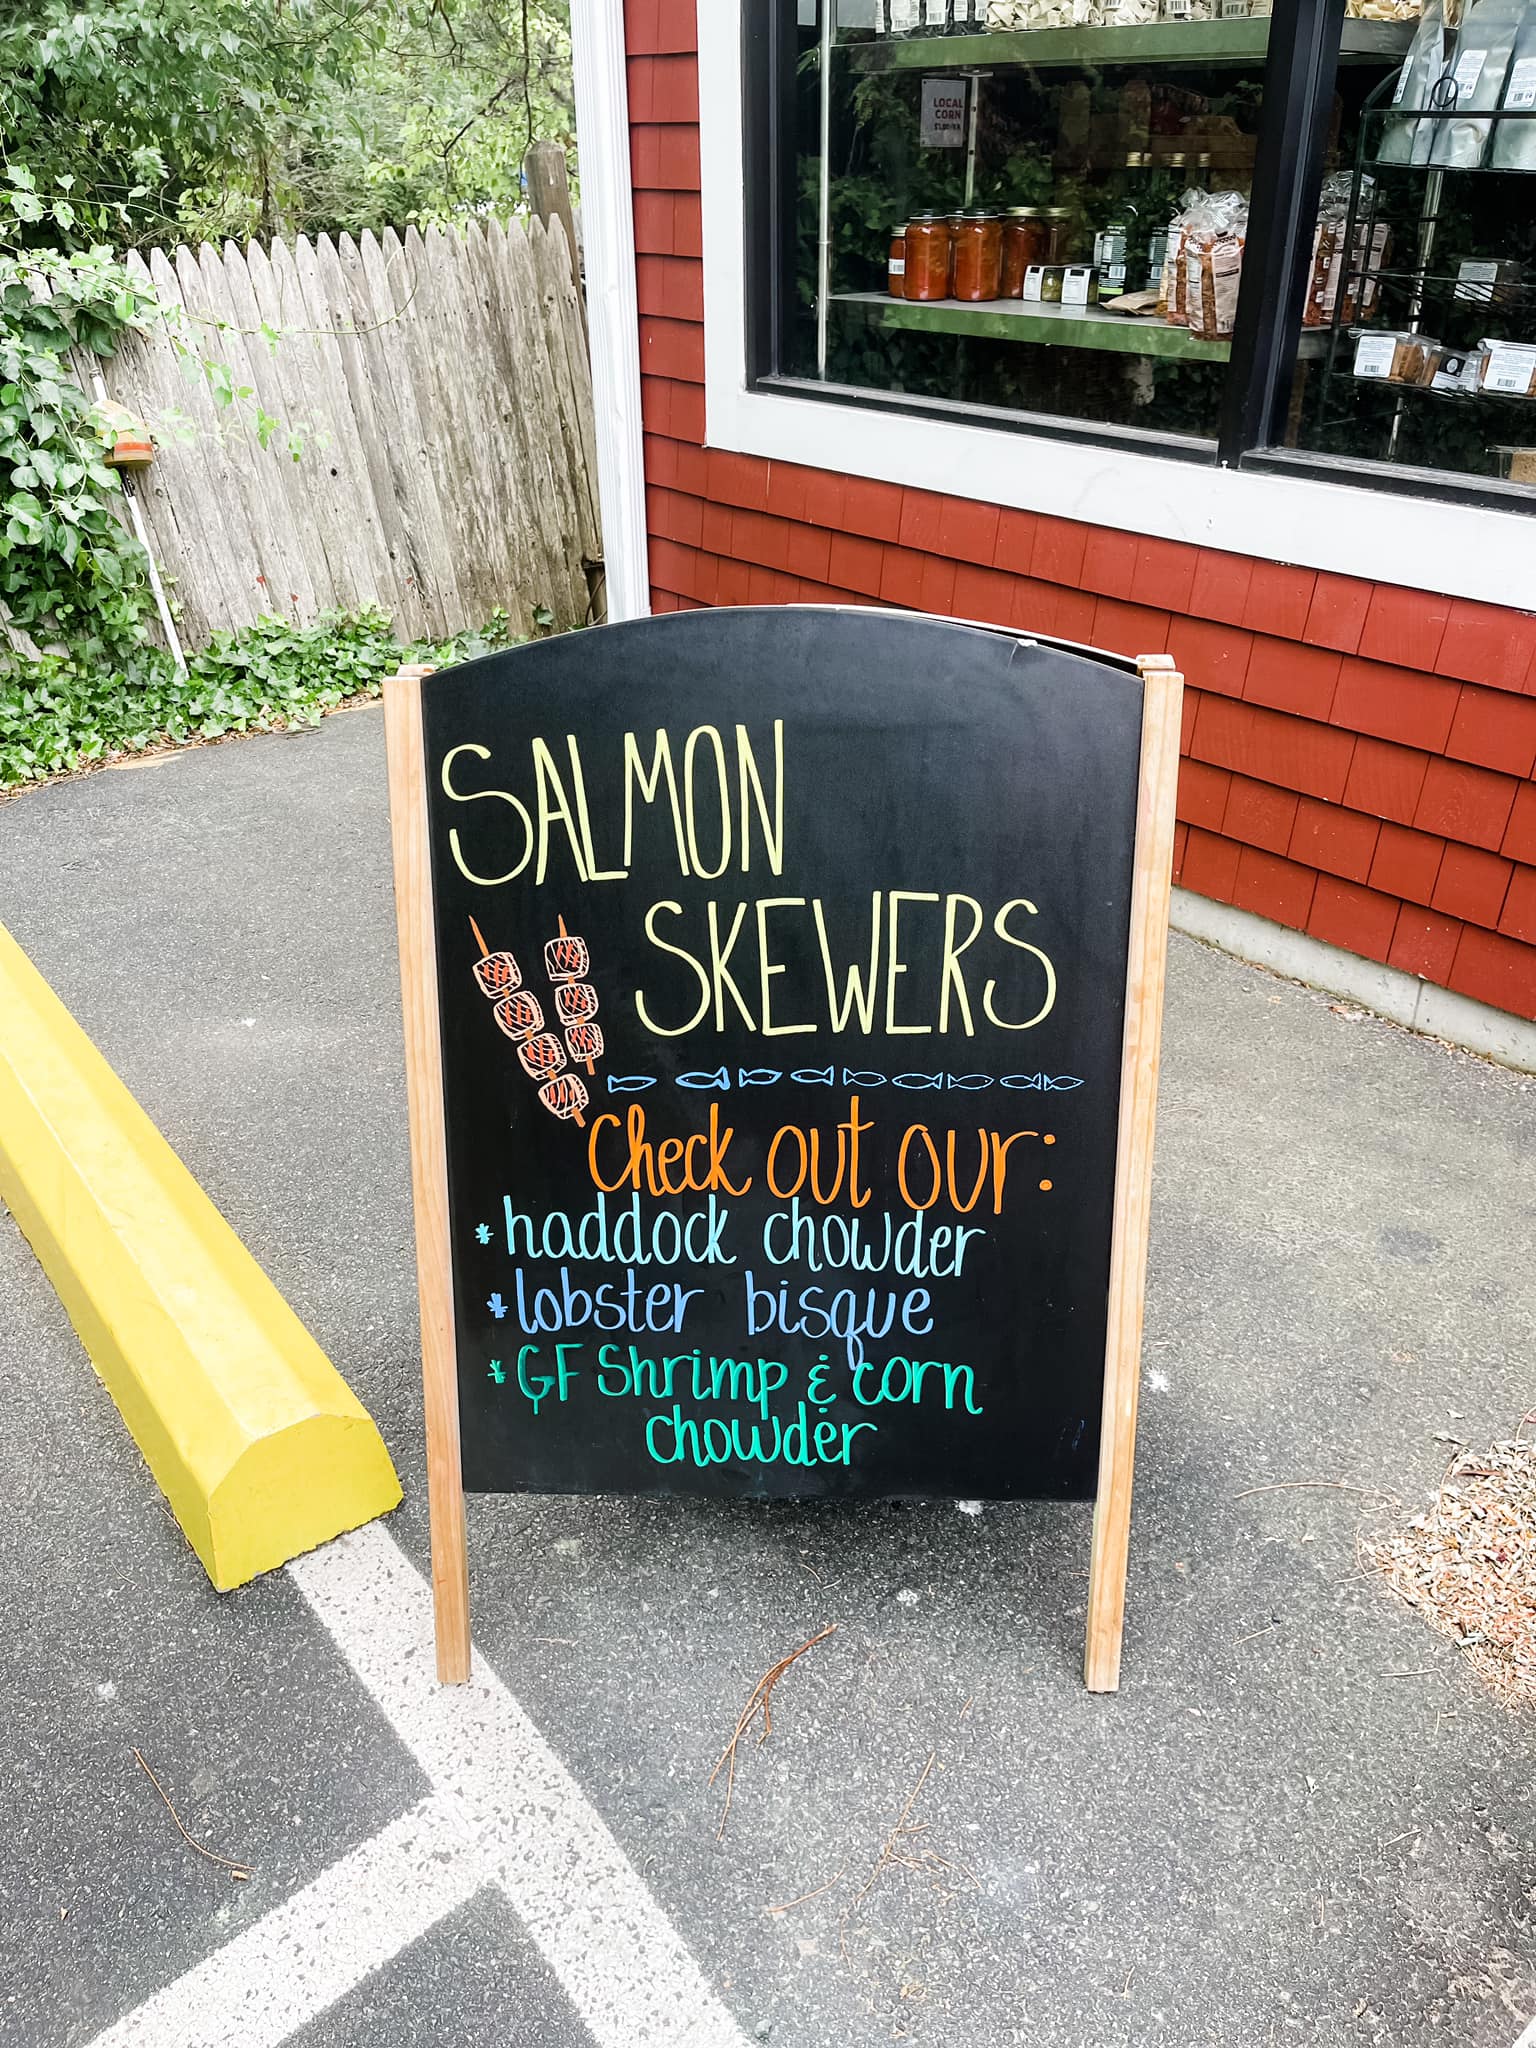 LOCAL
CORN
SALMON
SKEWERS
Check out our:
* haddock chowder
* lobster bisque
* GF Shrimp & corn
chowder